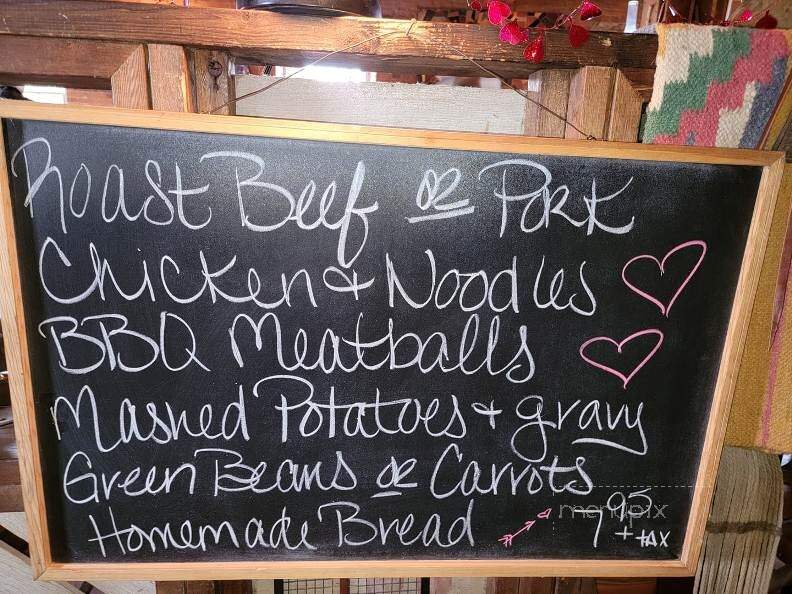 Roast Beef or Pork
Chicken + Noodles
BBQ Meatballs
Mashed Potatoes + gravy
Green Beans or Carrots
Homemade Bread
95
+ tax
menupix